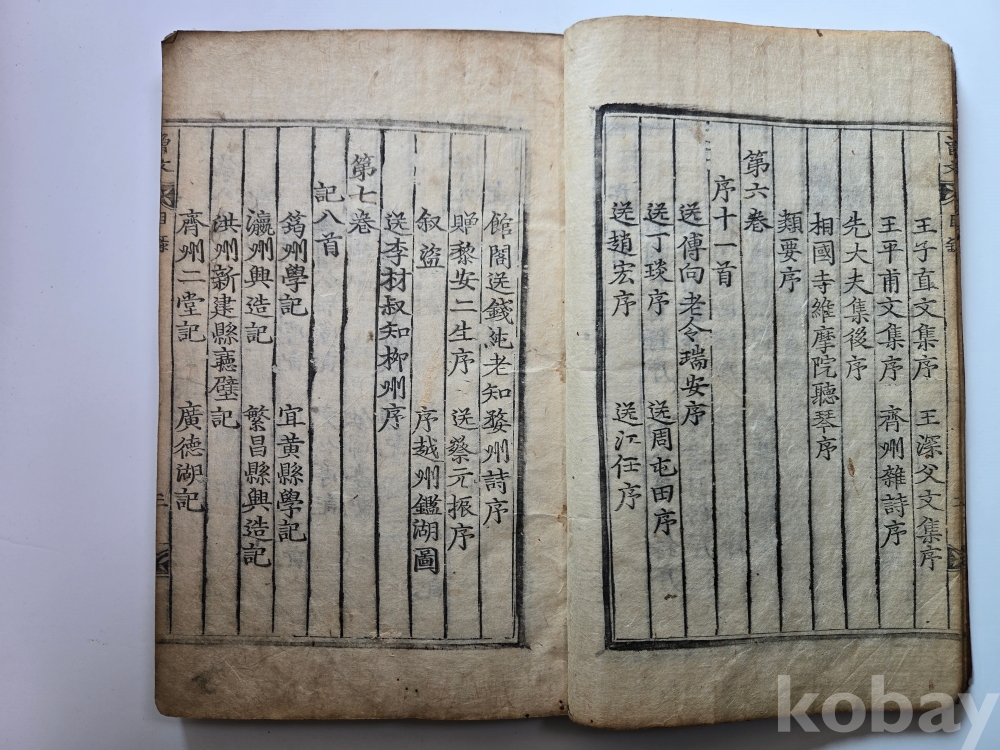 王子直文集序 王深父文集序
王平甫文集序 齊州雜詩序
先大夫集後序
相國寺維摩院聽琴序
類要序
第六卷
序十一首
送傅向老令瑞安序
送丁琰序 送周屯田序
送趙宏序 送江任序
館閣送錢純老知婺州詩序
贈黎安二生序 送蔡元振序
叙盜 序越州鑑湖圖
送李材叔知柳州序
第七卷
記八首
筠州學記 宜黃縣學記
瀛州興造記 繁昌縣興造記
洪州新建縣廳壁記
齊州二堂記 廣德湖記
曾文 目錄 二
kobay